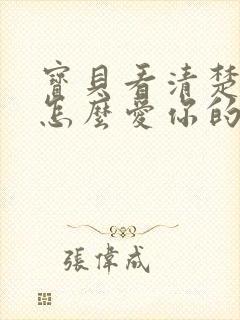 寶貝看清楚
怎麼愛你的
張偉成